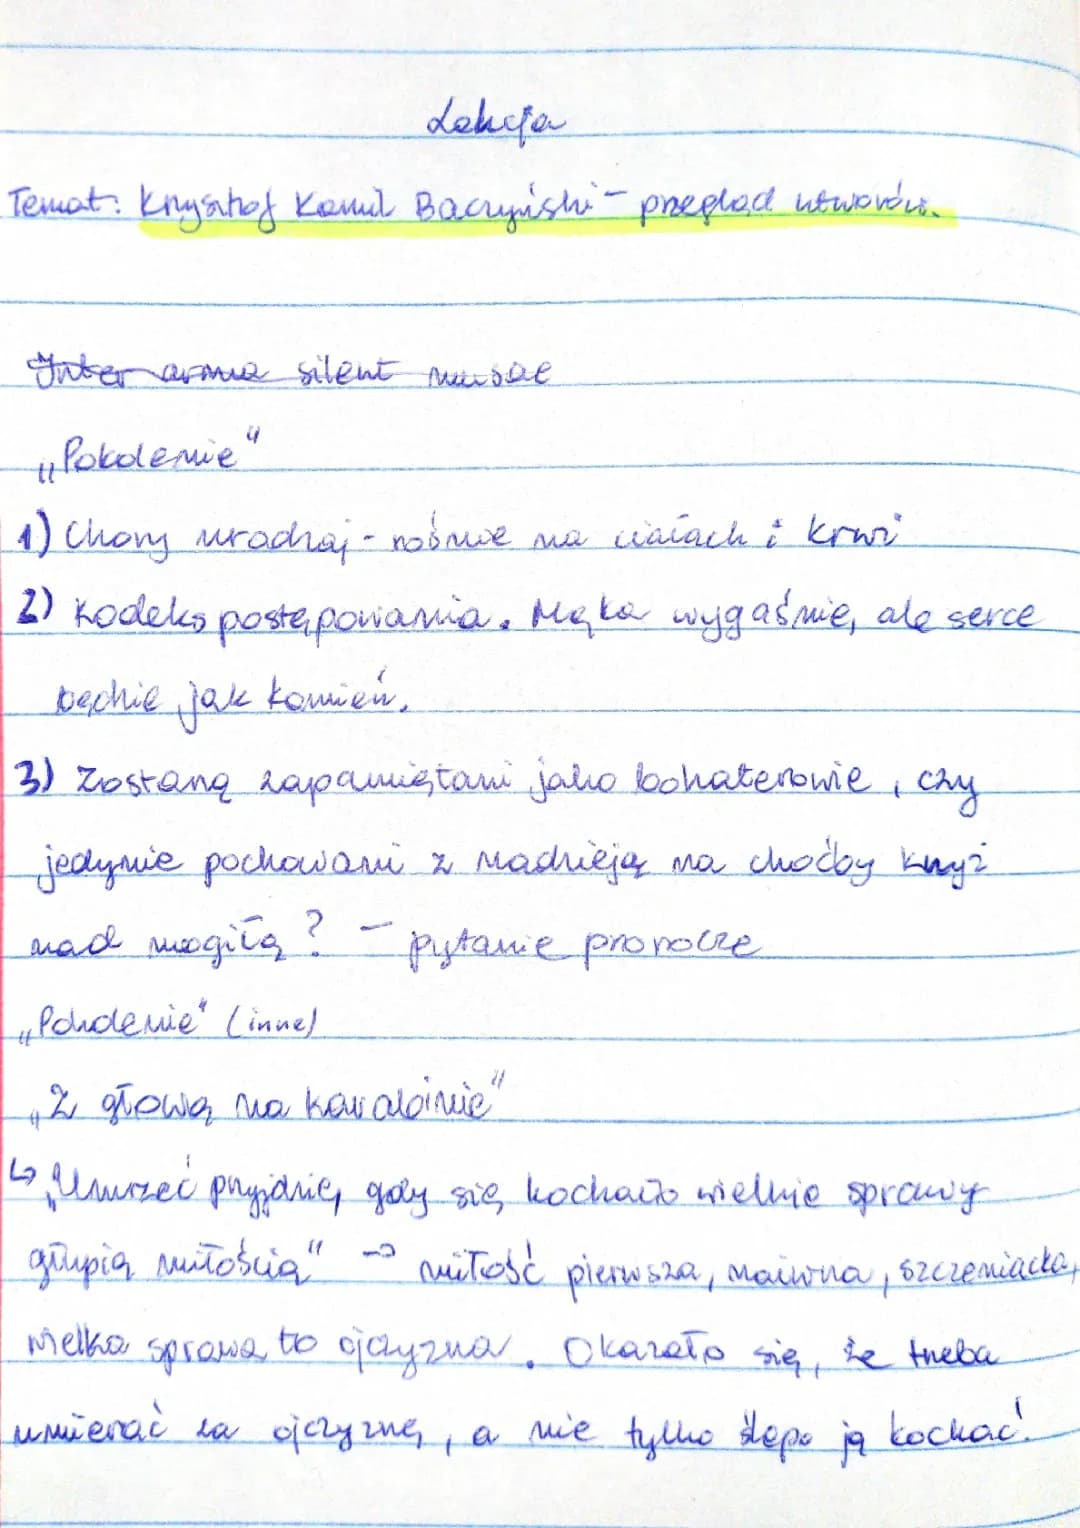 Lekcja
Temat: Krzysztof Kamil Baczyński - przegląd utworów.
Inter arma silent musae
„Pokolenie"
1) Chory urodzaj - rośnie na ciałach i krwi
2) Kodeks postępowania. Męka wygaśnie, ale serce
będzie jak kamień.
3) Zostaną zapamiętani jako bohaterowie, czy
jedynie pochowani z nadzieją na choćby krzyż
nad mogiłą? - pytanie prorocze
„Pokolenie" (inne)
„Z głową na karabinie"
↳ „Umrzeć przyjdzie, gdy się kochało wielkie sprawy
głupią miłością" → miłość pierwsza, naiwna, szczeniacka,
wielka sprawa to ojczyzna. Okazało się, że trzeba
umierać za ojczyznę, a nie tylko ślepo ją kochać.